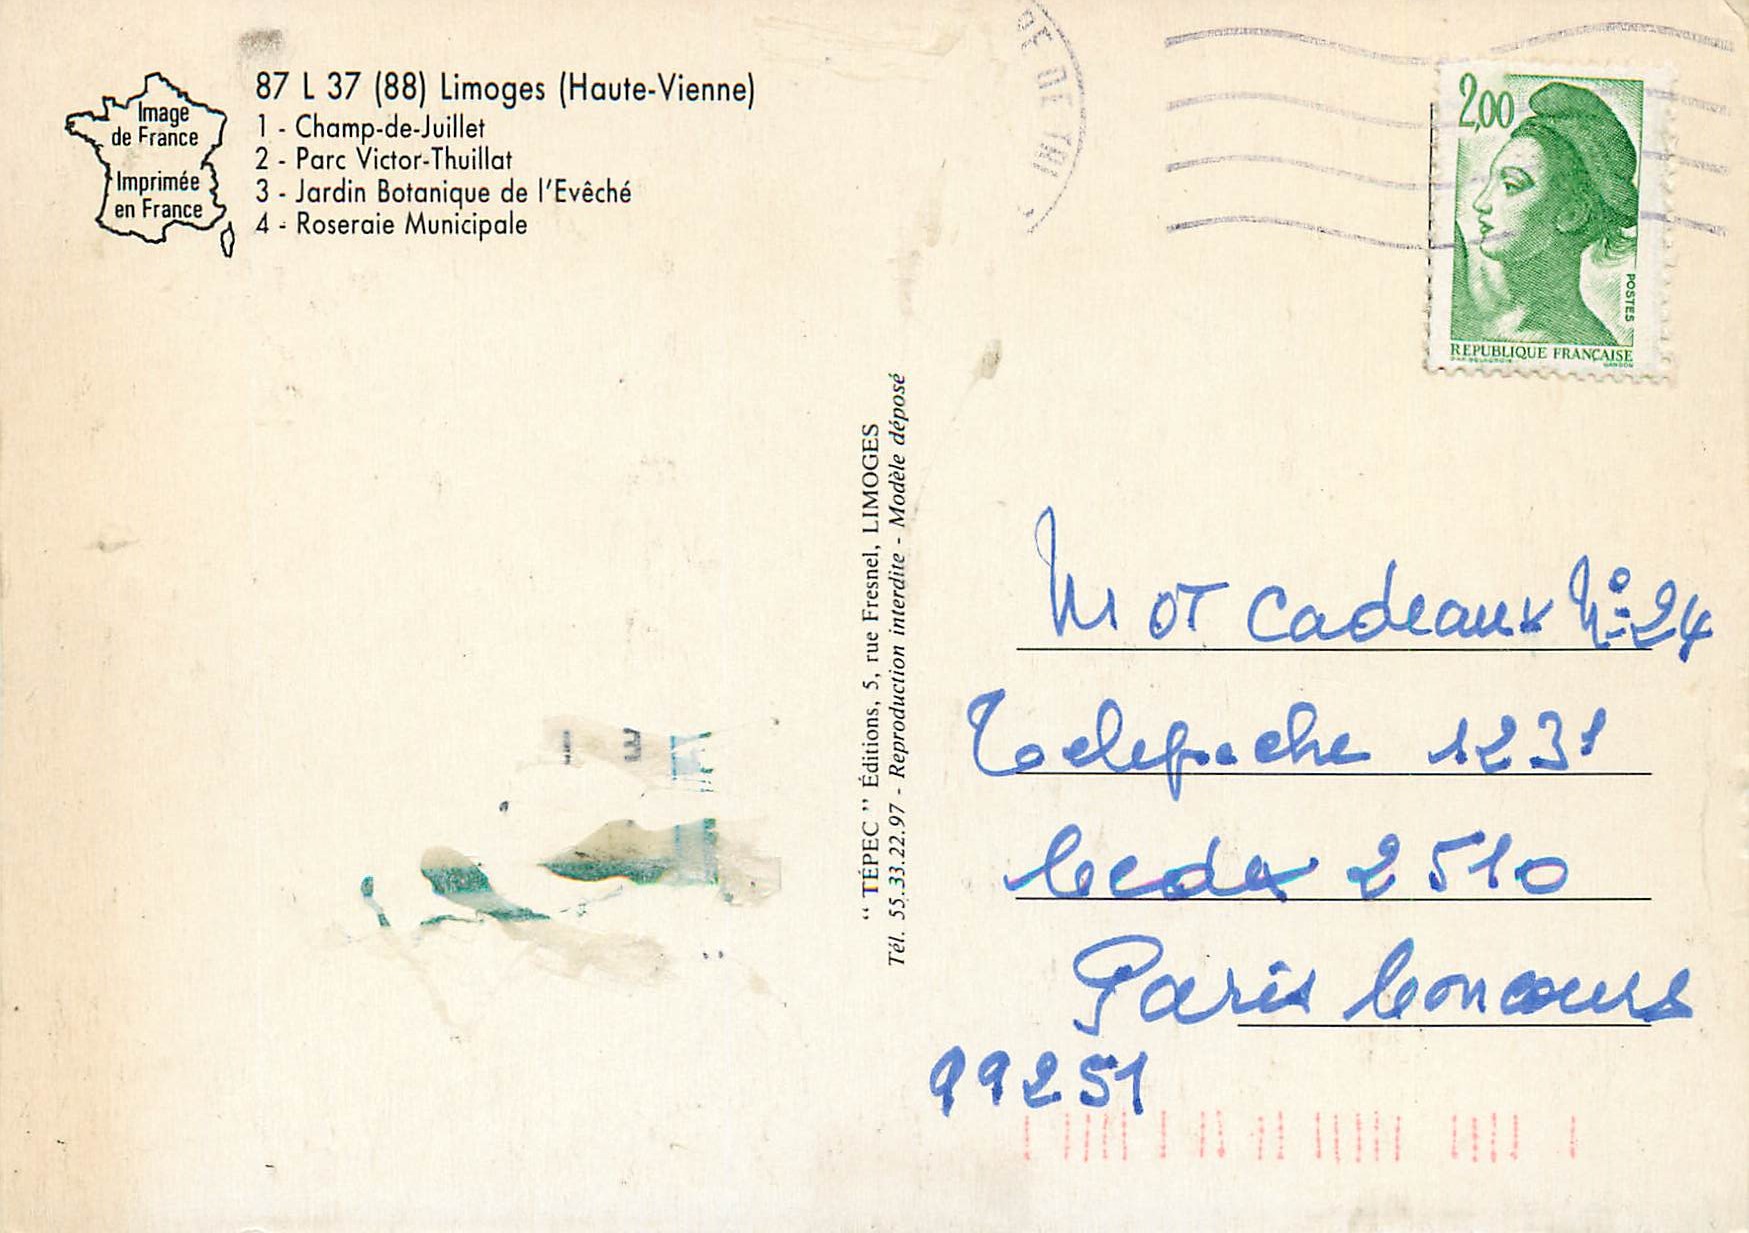 Image
de France
Imprimée
en France
87 L 37 (88) Limoges (Haute-Vienne)
1 - Champ-de-Juillet
2 - Parc Victor-Thuillat
3 - Jardin Botanique de l'Evêché
4 - Roseraie Municipale
DE TRI
2,00
POSTES
REPUBLIQUE FRANÇAISE
“ TÉPEC ” Éditions, 5, rue Fresnel, LIMOGES
Tél. 55.33.22.97 - Reproduction interdite - Modèle déposé
Mot cadeaux N° 24
Telepoche 1231
Cedex 2510
Paris Concours
99251